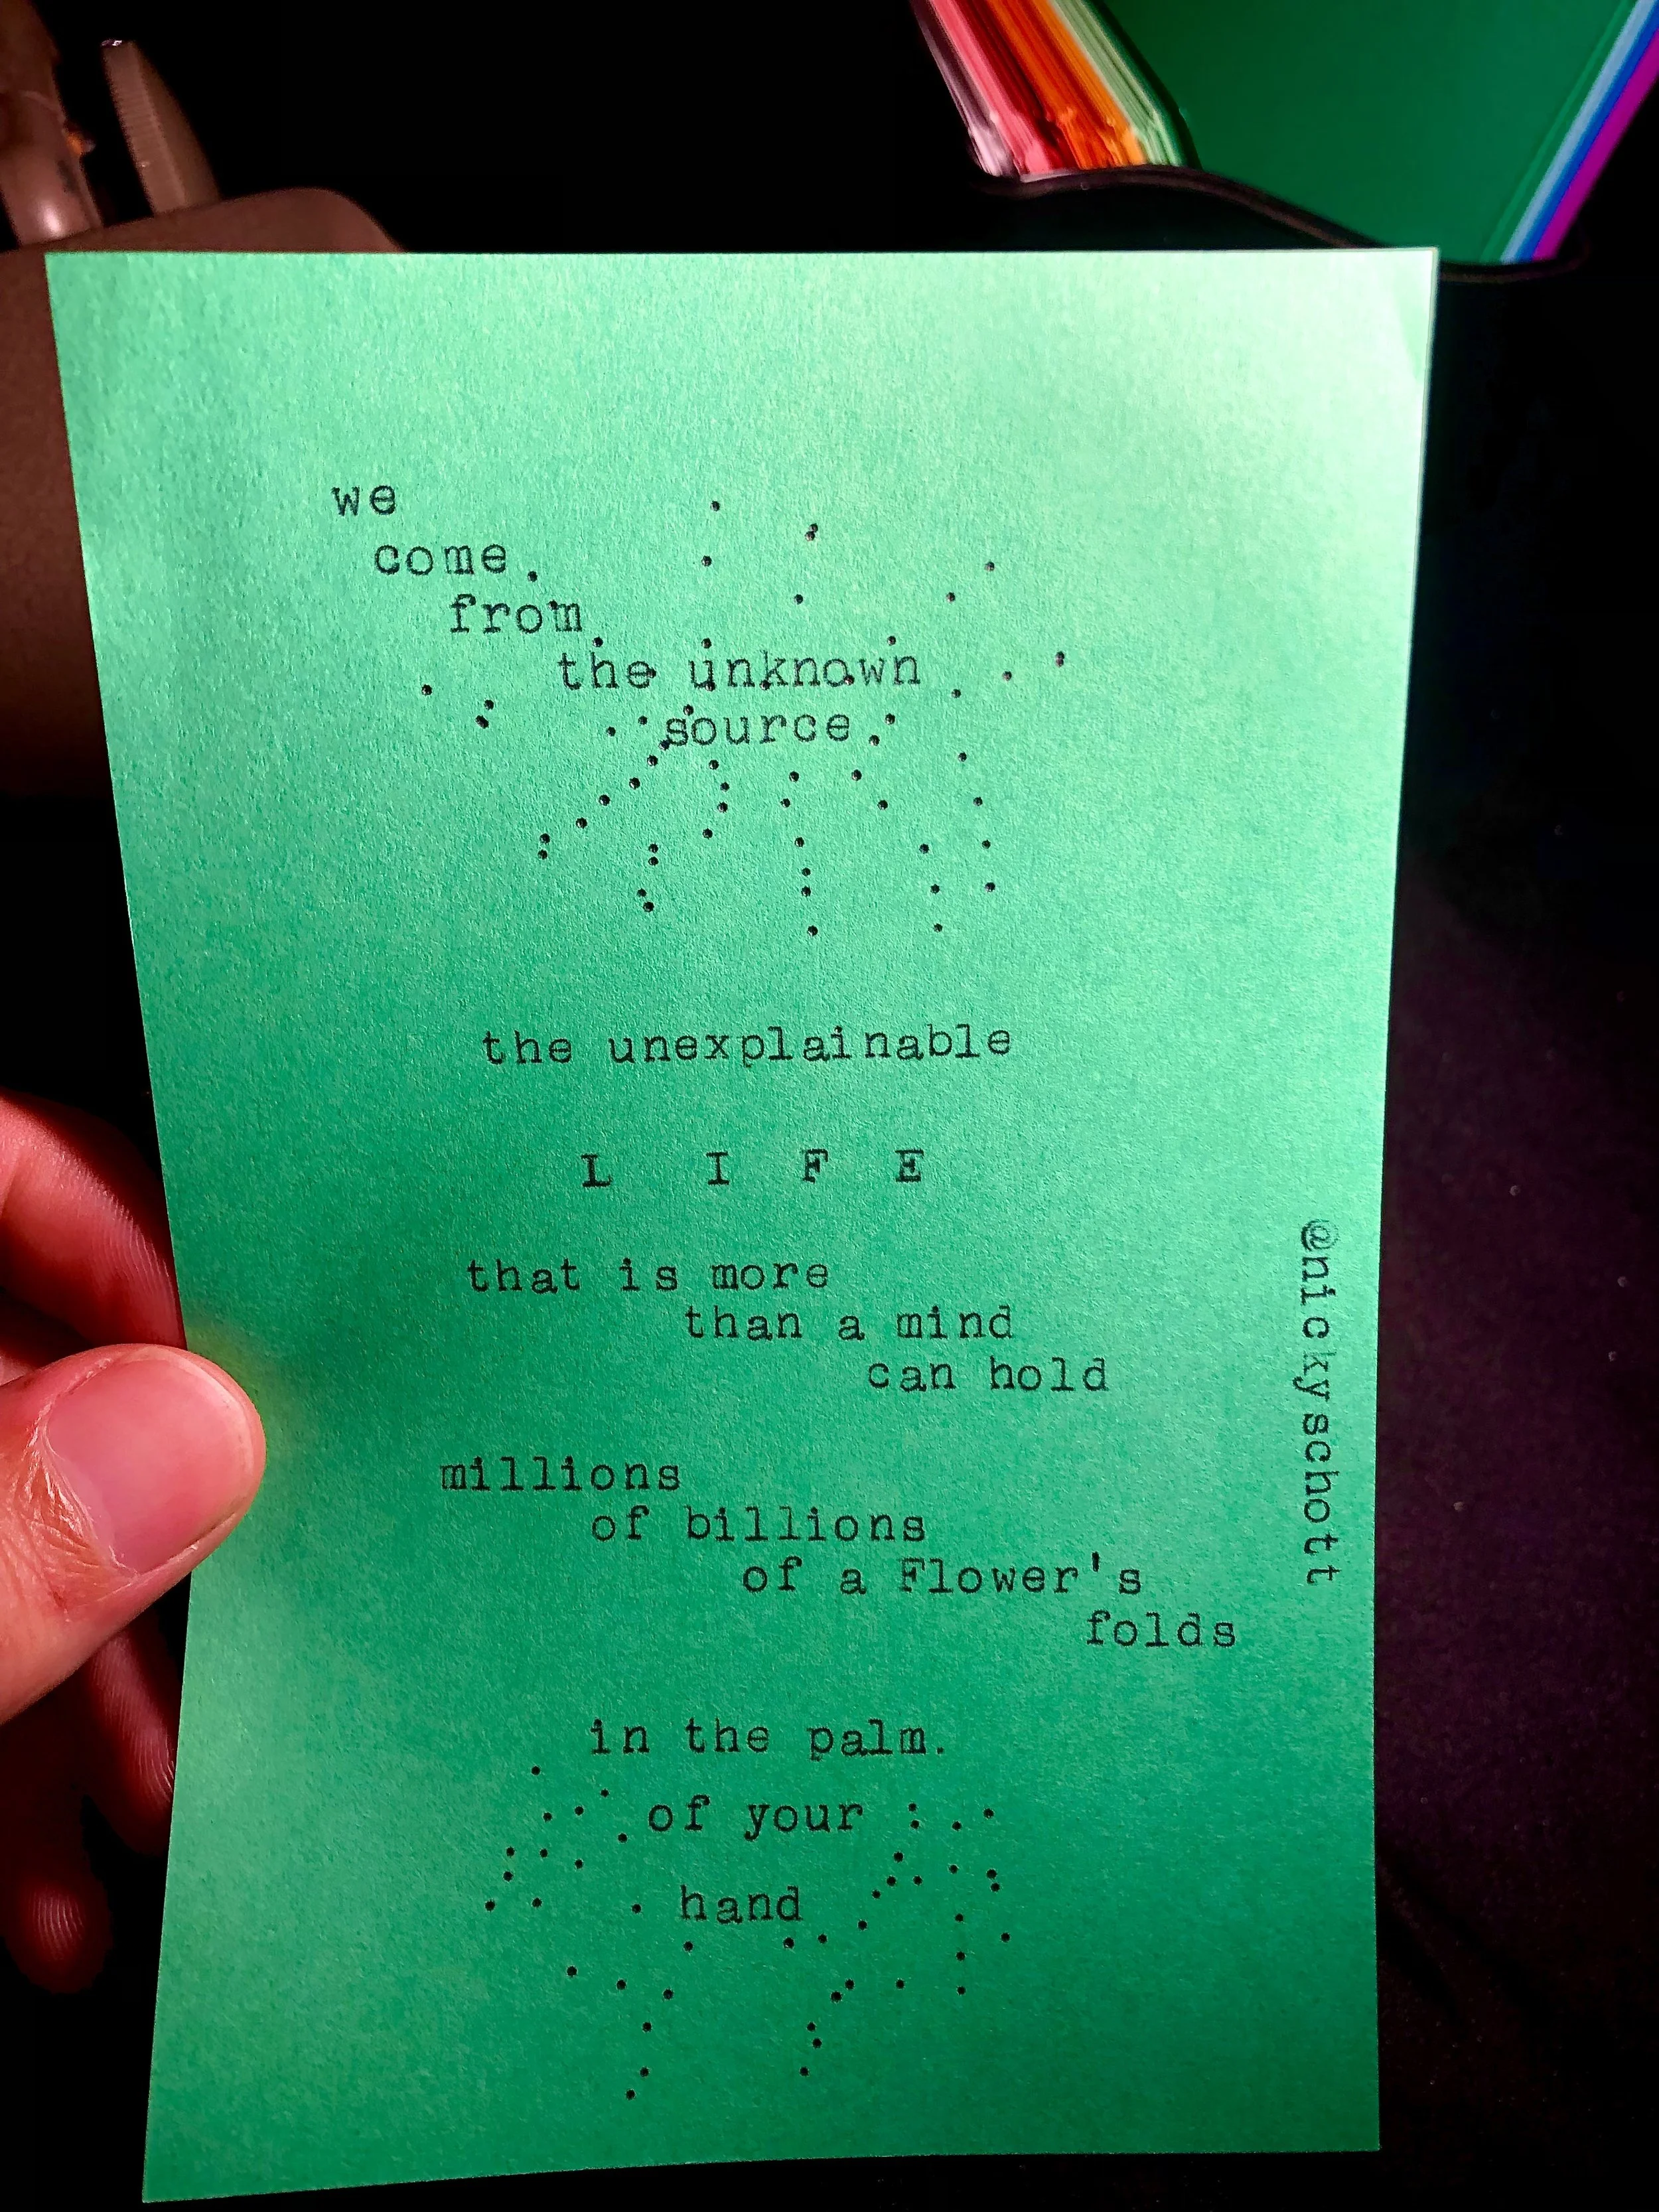 we
come
from
the unknown
source
the unexplainable
L I F E
that is more
than a mind
can hold
millions
of billions
of a Flower's
folds
in the palm.
of your
hand
@nickyschott